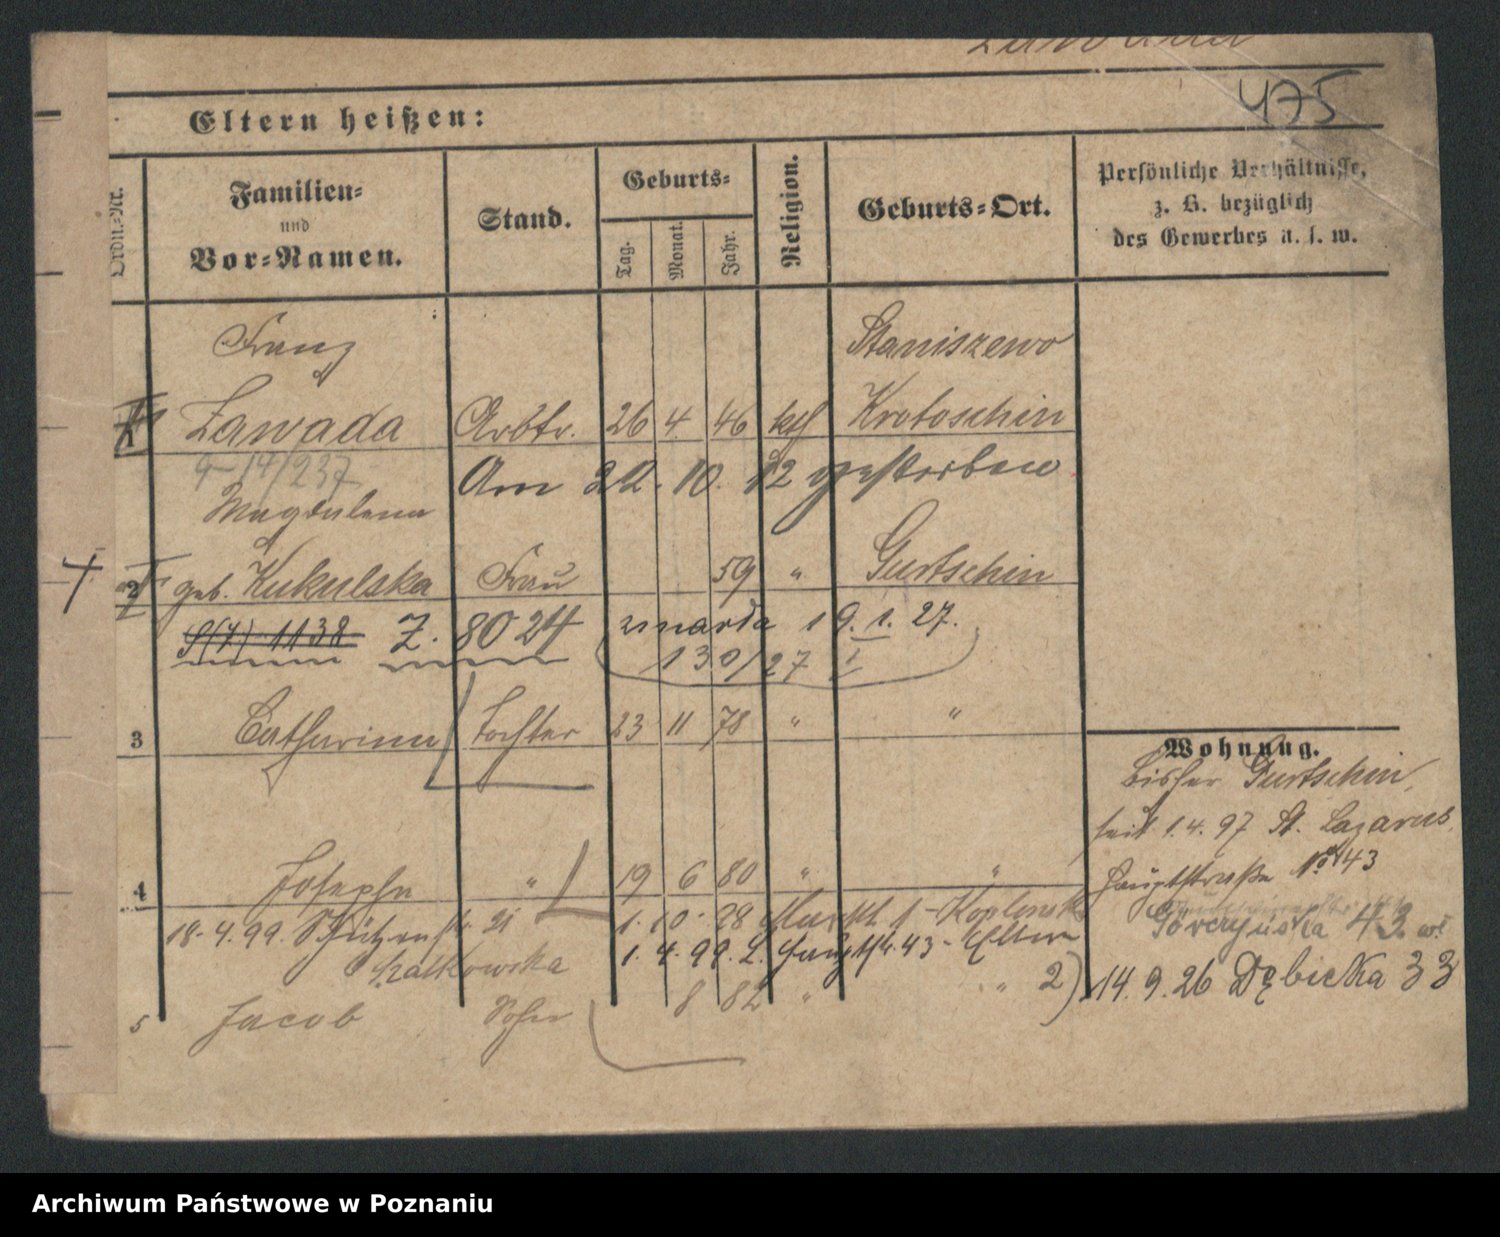 Zawada
475
Eltern heißen:
Ordn.-Nr.
Familien-
und
Vor-Namen.
Stand.
Geburts-
Tag.
Monat.
Jahr.
Religion.
Geburts-Ort.
Persönliche Verhältnisse,
z. B. bezüglich
des Gewerbes u. s. w.
Franz Staniszewo
1 Zawada Arbtr. 26 4. 46 kth Krotoschin
9-14/237 Am 22. 10. 12 gestorben
Magdalena
2 geb. Kukulska Frau 59 " Gurtschin
1138 Z. 8024 zmarła 19. 1. 27.
130/27 I
3 Catharina Tochter 23 11 78 " "
4 Josepha " 19 6 80 " "
18.4.99. Schützenstr. 21 1. 10. 98
Szatkowska 1. 4. 99. L. Hauptstr. 43 - Eltern
5 Jacob Sohn 8 82 " " 2)
Wohnung.
bisher Gurtschin,
seit 1.4.97 St. Lazarus,
Hauptstraße No 43
43
14. 9. 26 Dębicka 33
Archiwum Państwowe w Poznaniu